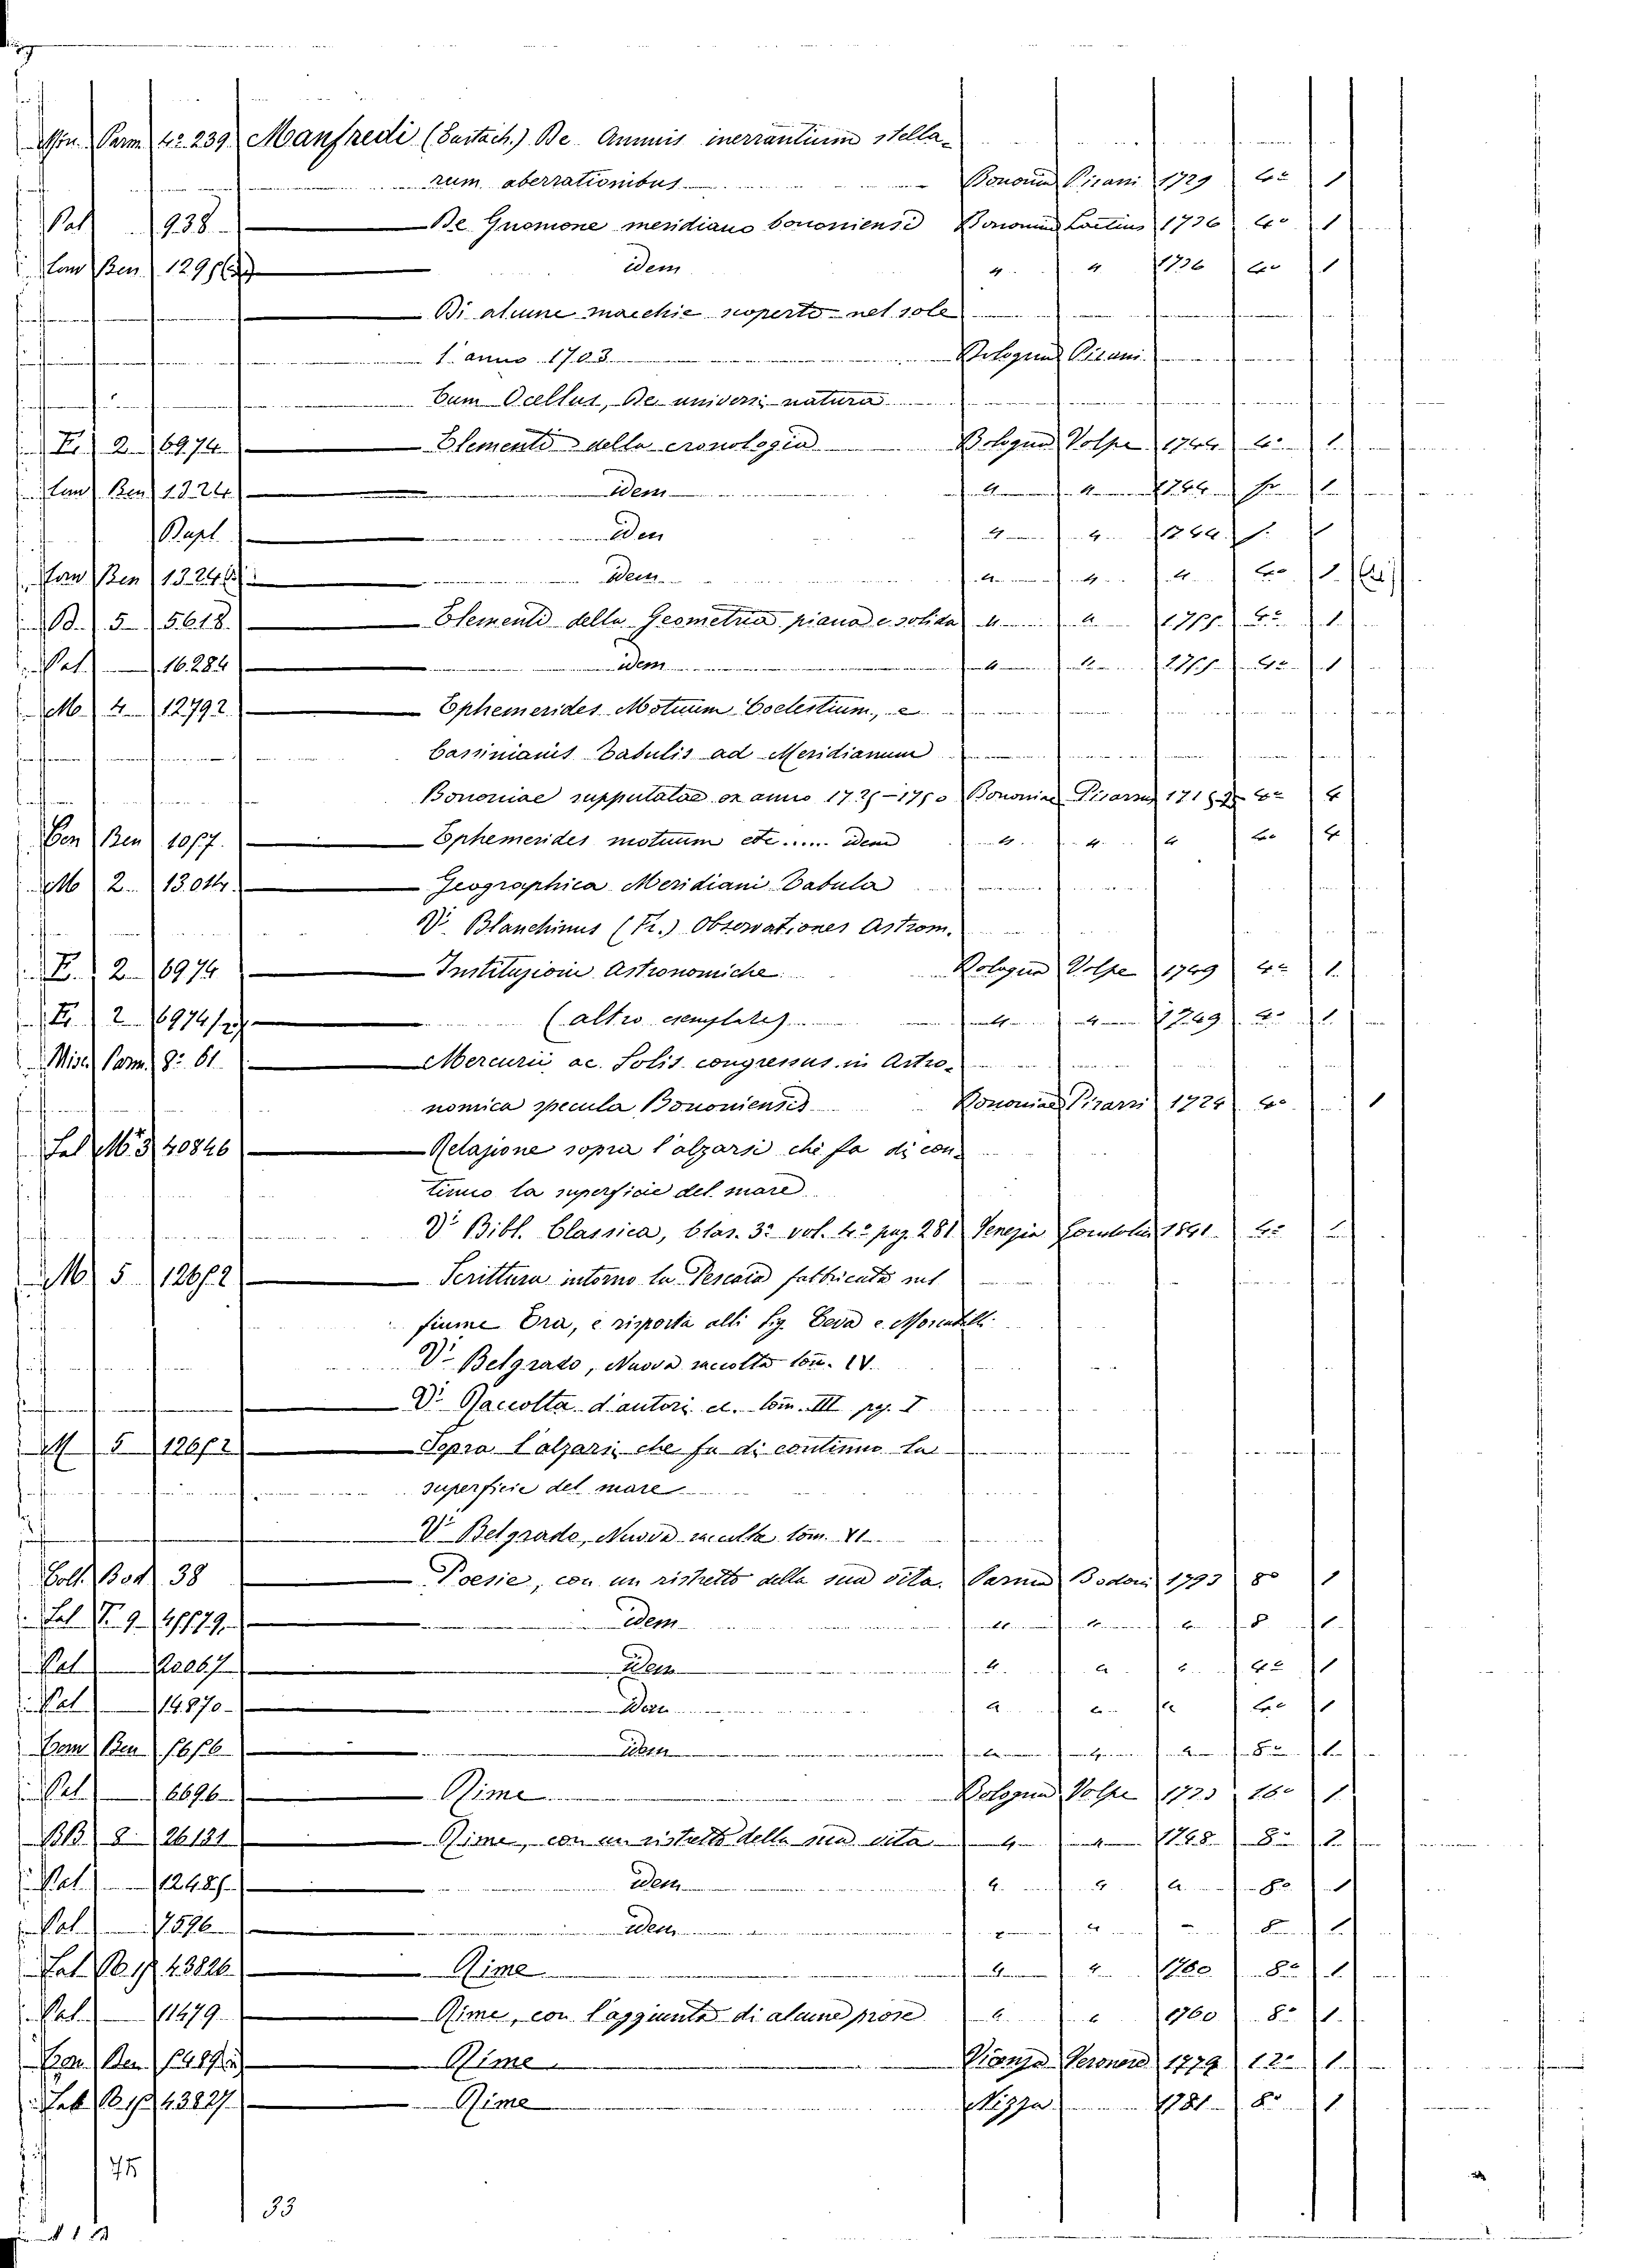 Parm 4º 239 Manfredi (Eustach.) De Annuis inerrantium stella-
rum aberrationibus Bononia Pisani 1729 4º 1
Pal 938 De Gnomone meridiano bononiensi Bononia 1736 4º 1
Ben 1295 idem " " 1736 4º 1
Di alcune macchie scoperte nel sole
l'anno 1703 Bologna Pisani
Cum Ocellus, De universi natura
F. 2 6974 Elementi della cronologia Bologna Volpe 1744 4º 1
Ben 1324 idem " " 1744 1
Bapt. idem " " 1744 1
Ben 1324 idem " " " 4º 1
B. 5 5618 Elementi della Geometria piana e solida " " 1755 4º 1
Pal. 16284 idem " " 1755 4º 1
M. 4 12792 Ephemerides Motuum Coelestium, e
Cassinianis Tabulis ad Meridianum
Bononiae supputatae ex anno 1725-1750 Bononiae 4º 4
Ben 1057 Ephemerides motuum etc...... idem " " " 4º 4
M 2 13014 Geographica Meridiani Tabula
V. Blanchinus (Fr.) Observationes Astrom.
F. 2 6974 Instituzioni Astronomiche Bologna Volpe 1749 4º 1
F. 2 6974/2 (altro esemplare) " " 1749 4º 1
Misc Parm. 8º 61 Mercurii ac Solis congressus in Astro-
nomica specula Bononiensis Bononiae Pisarri 1724 4º 1
Sal M. 3 40846 Relazione sopra l'alzarsi che fa di con-
tinuo la superficie del mare
Vº Bibl. Classica, Clas. 3ª vol. 4º pag. 281 Venezia 1841 4º 1
M 5 12652 Scrittura intorno la Pescaia fabbricata sul
fiume Era, e risposta alli Sig. Ceva e Moscatelli
Vº Belgrado, Nuova raccolta tom. IV.
Vº Raccolta d'autori tom. III pg. I
M 5 12652 Sopra l'alzarsi che fa di continuo la
superficie del mare
Vº Belgrado, Nuova raccolta tom. VI
Coll. Bod. 38 Poesie, con un ristretto della sua vita. Parma Bodoni 1793 8º 1
Sal F. 9 45579 idem " " " 8 1
Pal 20067 idem " " " 4º 1
Pal 14870 idem " " " 4º 1
Ben 5656 idem " " " 8º 1
Pal 6696 Rime Bologna Volpe 1723 16º 1
BB 8 26131 Rime, con un ristretto della sua vita " " 1748 8º 1
Pal 12485 idem " " " 8º 1
Pal 7596 idem " " " 8 1
Sal B. 15 43826 Rime " " 1760 8º 1
Pal 11479 Rime, con l'aggiunta di alcune prose " " 1760 8º 1
Ben Rime Veronese 1779 12º 1
Sal B. 15 43827 Rime Nizza 1781 8º 1
75
33